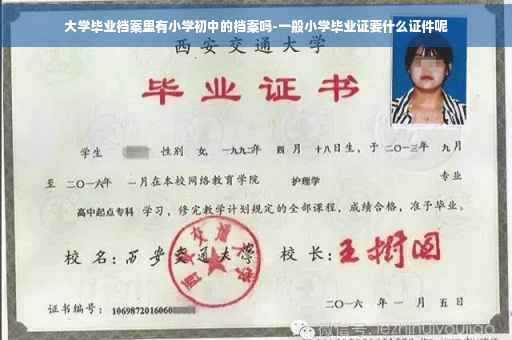 大学毕业档案里有小学初中的档案吗-一般小学毕业证要什么证件呢
西安交通大学
毕业证书
学生 性别 女, 一九九二年 四月 十八日生, 于 二〇一三年 九月
至 二〇一六年 一月在本校网络教育学院 护理学 专业
高中起点专科 学习, 修完教学计划规定的全部课程, 成绩合格, 准予毕业。
校名: 西安交通大学 校长: 王树国
西安交通大学
证书编号: 1069872016060
二〇一六年 一月五日
微信号: jezhinuiyoujiao